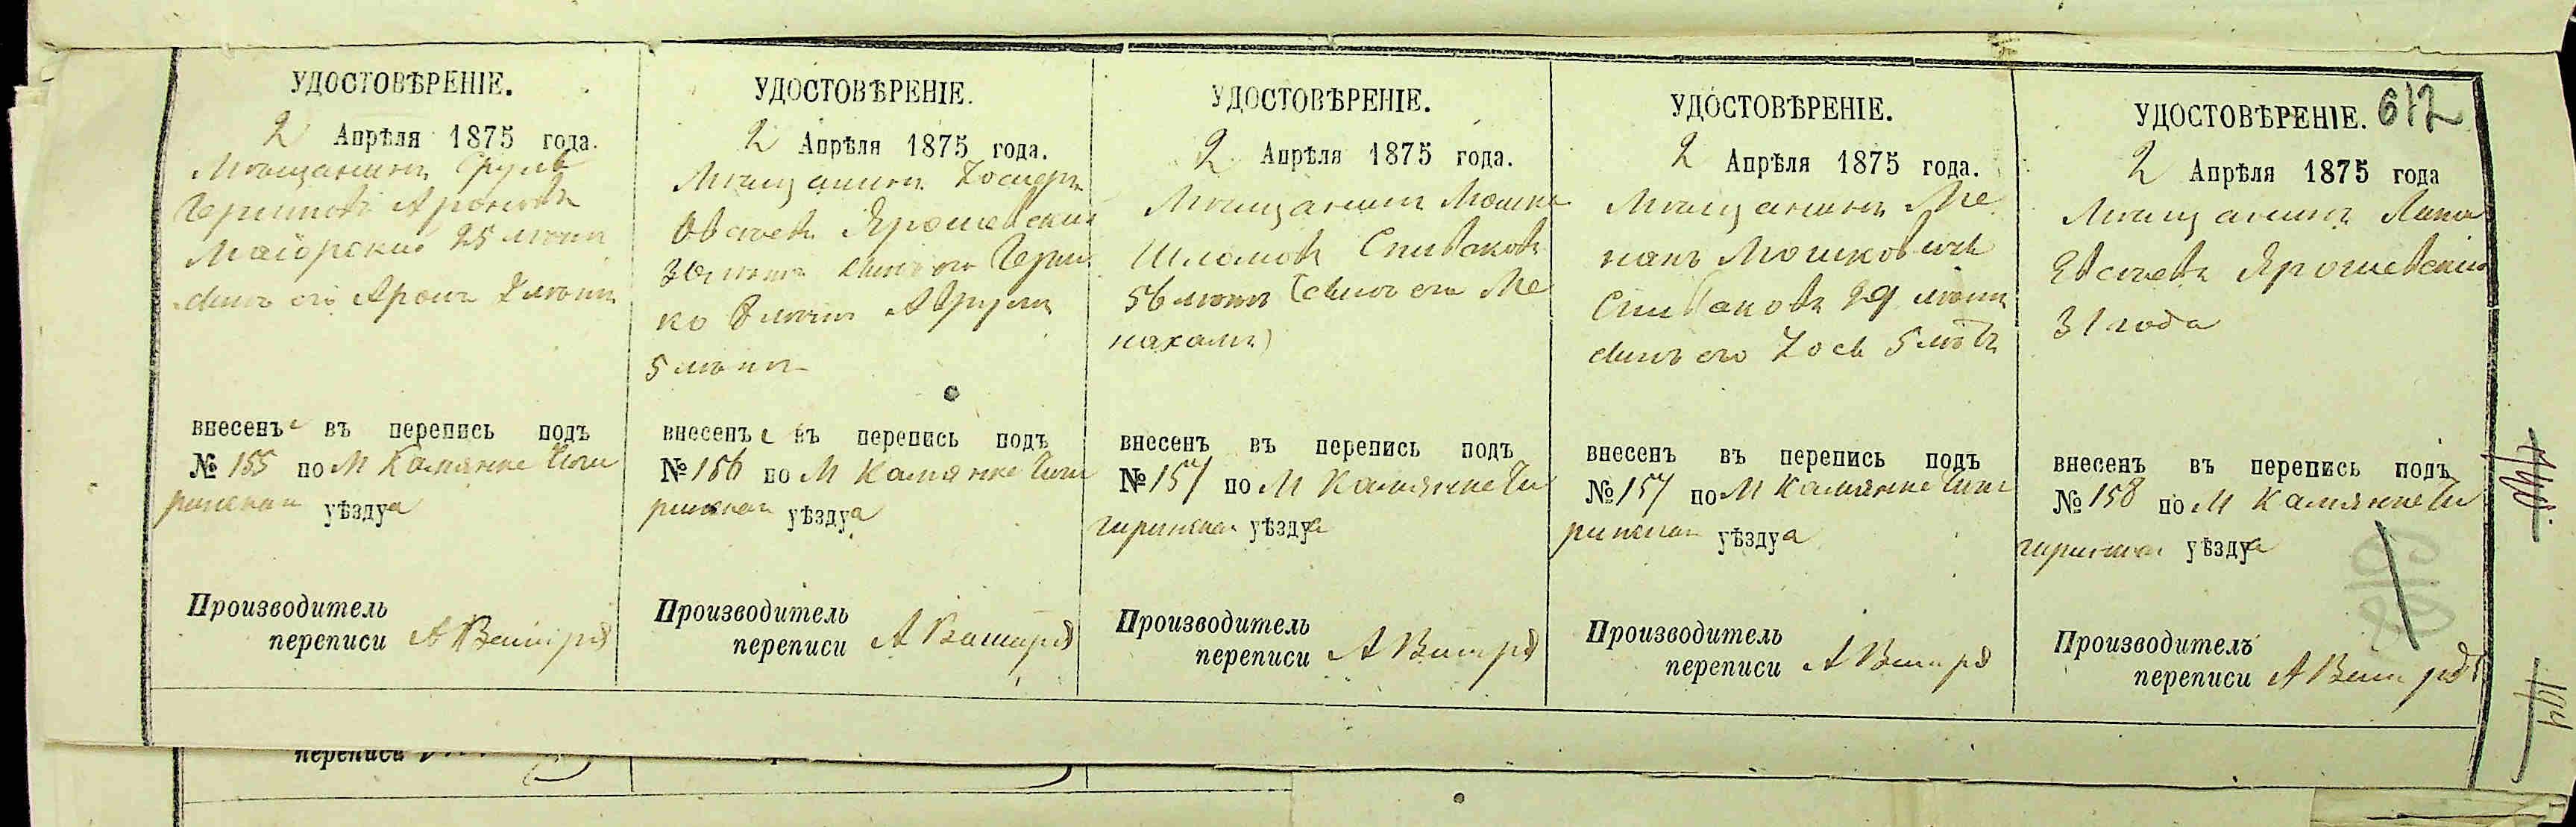 УДОСТОВѢРЕНІЕ.
2 Апрѣля 1875 года.
Мѣщанинъ Сруль
Гершковъ Ароновъ
Маіорскій 25 лѣтъ
сынъ его Аронъ 2 лѣтъ
внесенъ въ перепись подъ
№ 155 по М Камянке Чиги
ринскаго уѣзду а
Производитель
переписи А
УДОСТОВѢРЕНІЕ.
2 Апрѣля 1875 года.
Мѣщанинъ
Овсѣевъ Ярошевскій
лѣтъ сынъ его Герш
ко лѣтъ Аврумъ
5 лѣтъ
внесенъ въ перепись подъ
№ 156 по М Камянке Чиги
ринскаго уѣзду а
Производитель
переписи А
УДОСТОВѢРЕНІЕ.
2 Апрѣля 1875 года.
Мѣщанинъ Мошко
Шломовъ Спиваковъ
56 лѣтъ (сынъ его Ме
нахамъ)
внесенъ въ перепись подъ
№ 157 по М Камянке Чи
гиринскаго уѣзду а
Производитель
переписи А
УДОСТОВѢРЕНІЕ.
2 Апрѣля 1875 года.
Мѣщанинъ Ме
Мошковичъ
Спиваковъ 29 лѣтъ
сынъ его Іось 5 лѣтъ
внесенъ въ перепись подъ
№ 157 по М Камянке Чиги
ринскаго уѣзду а
Производитель
переписи А
УДОСТОВѢРЕНІЕ. 612
2 Апрѣля 1875 года
Мѣщанинъ
Евсѣевъ Ярошевскій
31 года
внесенъ въ перепись подъ
№ 158 по М Камянке Чи
гиринскаго уѣзду а
Производитель
переписи А
переписи